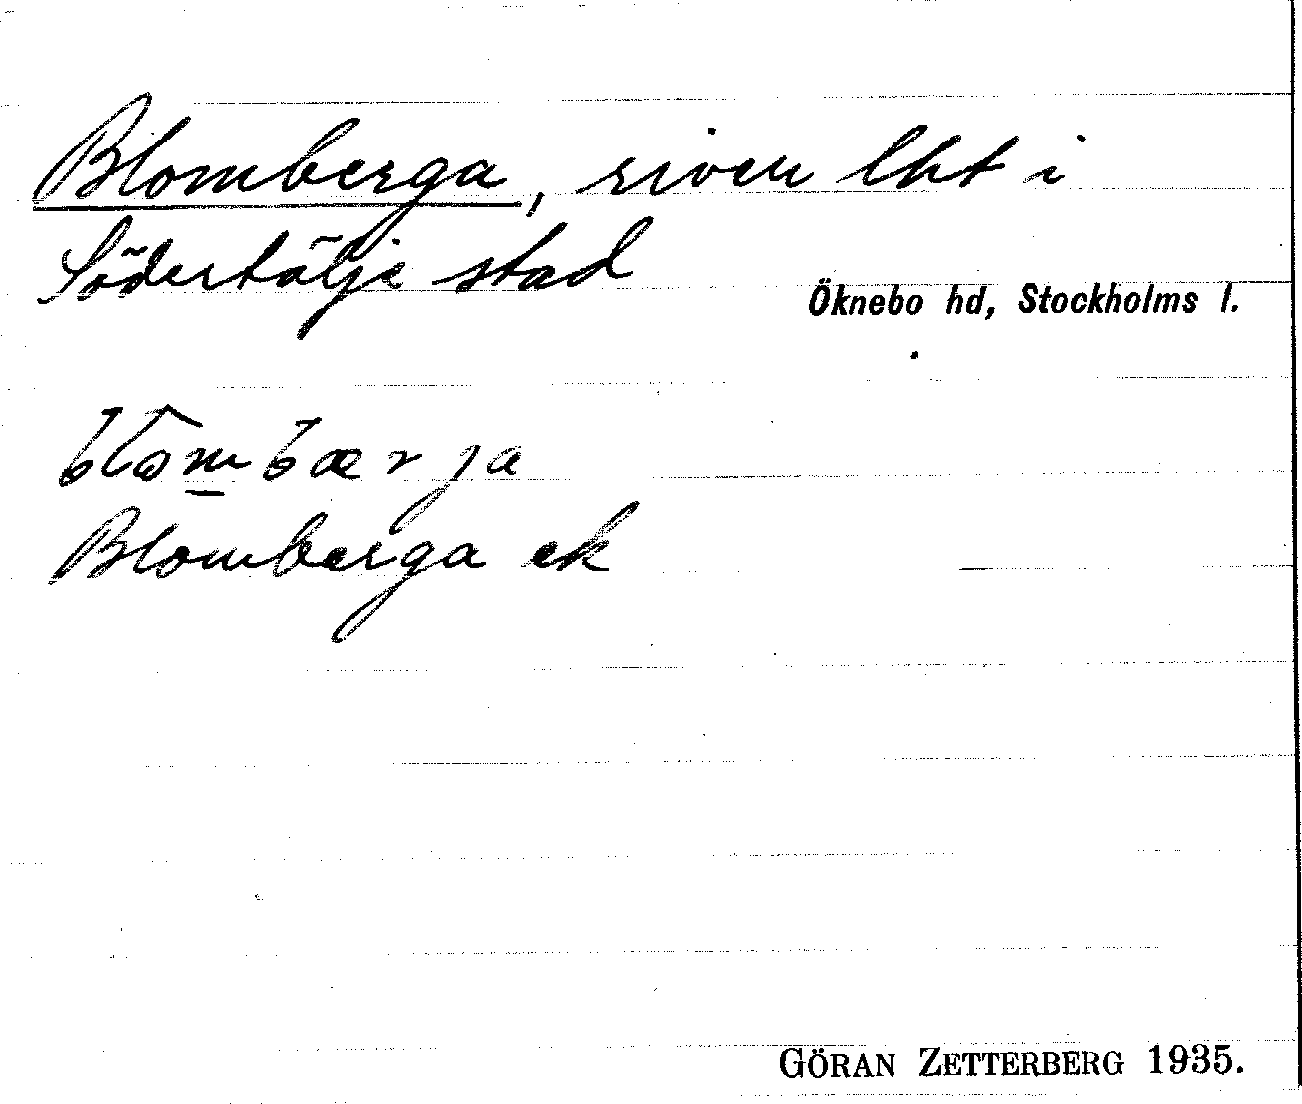 Blomberga, riven lht i
Södertälje stad
Öknebo hd, Stockholms l.
blombærja
Blomberga ek
GÖRAN ZETTERBERG 1935.